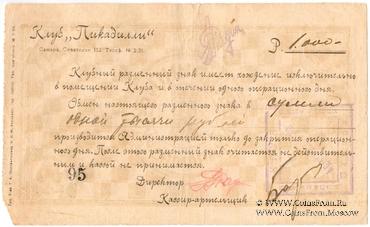 Клубъ „Пикадилли"
Самара, Советская 112. Телеф. № 2-31.
Р. 1.000-
Клубный разменный знак имеет хождение исключительно
в помещении Клуба и в течении одного операционного дня.
Обмен настоящего разменного знака в сумме
одной тысячи рублей
производится Администрацией только до закрытия операцион-
ного дня. После этого разменный знак считается не действи-
тельным и кассой не принимается.
95
Директор
Кассир-артельщик
© CoinsFrom.Ru
CoinsFrom.Moscow